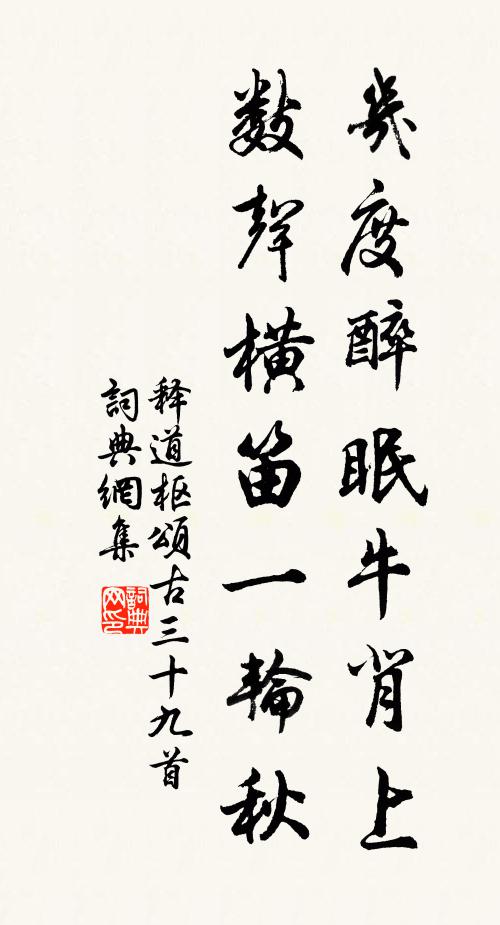 幾度醉眠牛背上
數聲橫笛一輪秋
释道枢頌古三十九首
詞典網集
詞典网印